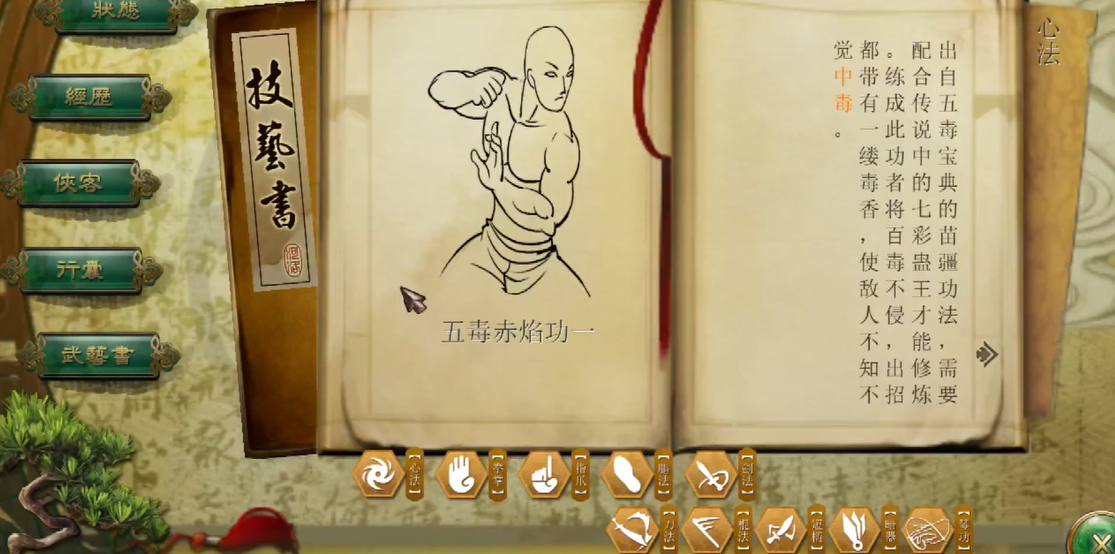 狀態
經歷
俠客
行囊
武藝書
技藝書
五毒赤焰功一
心法
出自五毒宝典的苗疆功法，需要
配合传说中的七彩蛊王才能修炼
。练成此功者将百毒不侵，出招
都带有一缕毒香，使敌人不知不
觉中毒。
心法
拳掌
指爪
腿法
劍法
刀法
棍法
短柄
暗器
琴功